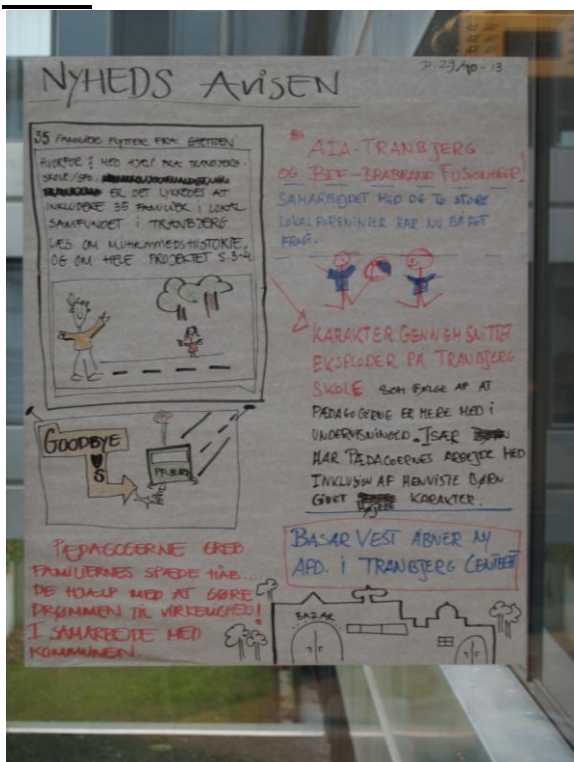 NYHEDS AVISEN
D. 29/10-13
35 FAMILIER FLYTTER FRA GHETTOEN
HVORFOR? MED HJÆLP FRA TRANBJERG-
SKOLE/SFO.
ER DET LYKKEDES AT
INKLUDERE 35 FAMILIER I LOKAL
SAMFUNDET I TRANBJERG
LÆS OM MUHAMMEDS HISTORIE,
OG OM HELE PROJEKTET S. 3-4
GOODBYE
US
PÆDAGOGERNE GREB
FAMILIERNES SPÆDE HÅB...
DE HJALP MED AT GØRE
DRØMMEN TIL VIRKELIGHED!
I SAMARBEJDE MED
KOMMUNEN
AIA-TRANBJERG
OG BIF-BRABRAND FUSIONERER!
SAMARBEJDET MED DE TO STORE
LOKALFORENINGER HAR NU BÅRET
FRUGT.
KARAKTER GENNEMSNITTET
EKSPLODER PÅ TRANBJERG
SKOLE SOM FØLGE AF AT
PÆDAGOGERNE ER MERE MED I
UNDERVISNINGEN. ISÆR
HAR PÆDAGOGERNES ARBEJDE MED
INKLUSION AF HENVISTE BØRN
GIVET HØJERE KARAKTER.
BASAR VEST ÅBNER NY
AFD. I TRANBJERG CENTERET
BAZAR